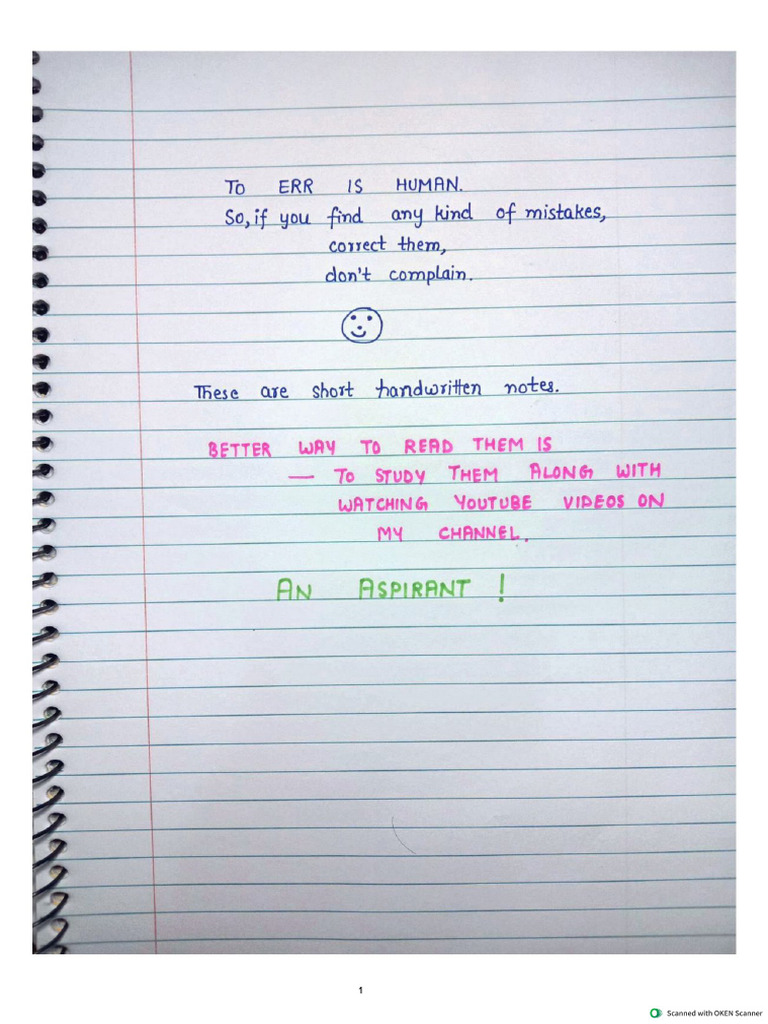 TO ERR IS HUMAN.
So, if you find any kind of mistakes,
correct them,
don't complain.
These are short handwritten notes.
BETTER WAY TO READ THEM IS
— TO STUDY THEM ALONG WITH
WATCHING YOUTUBE VIDEOS ON
MY CHANNEL.
AN ASPIRANT !
1
Scanned with OKEN Scanner